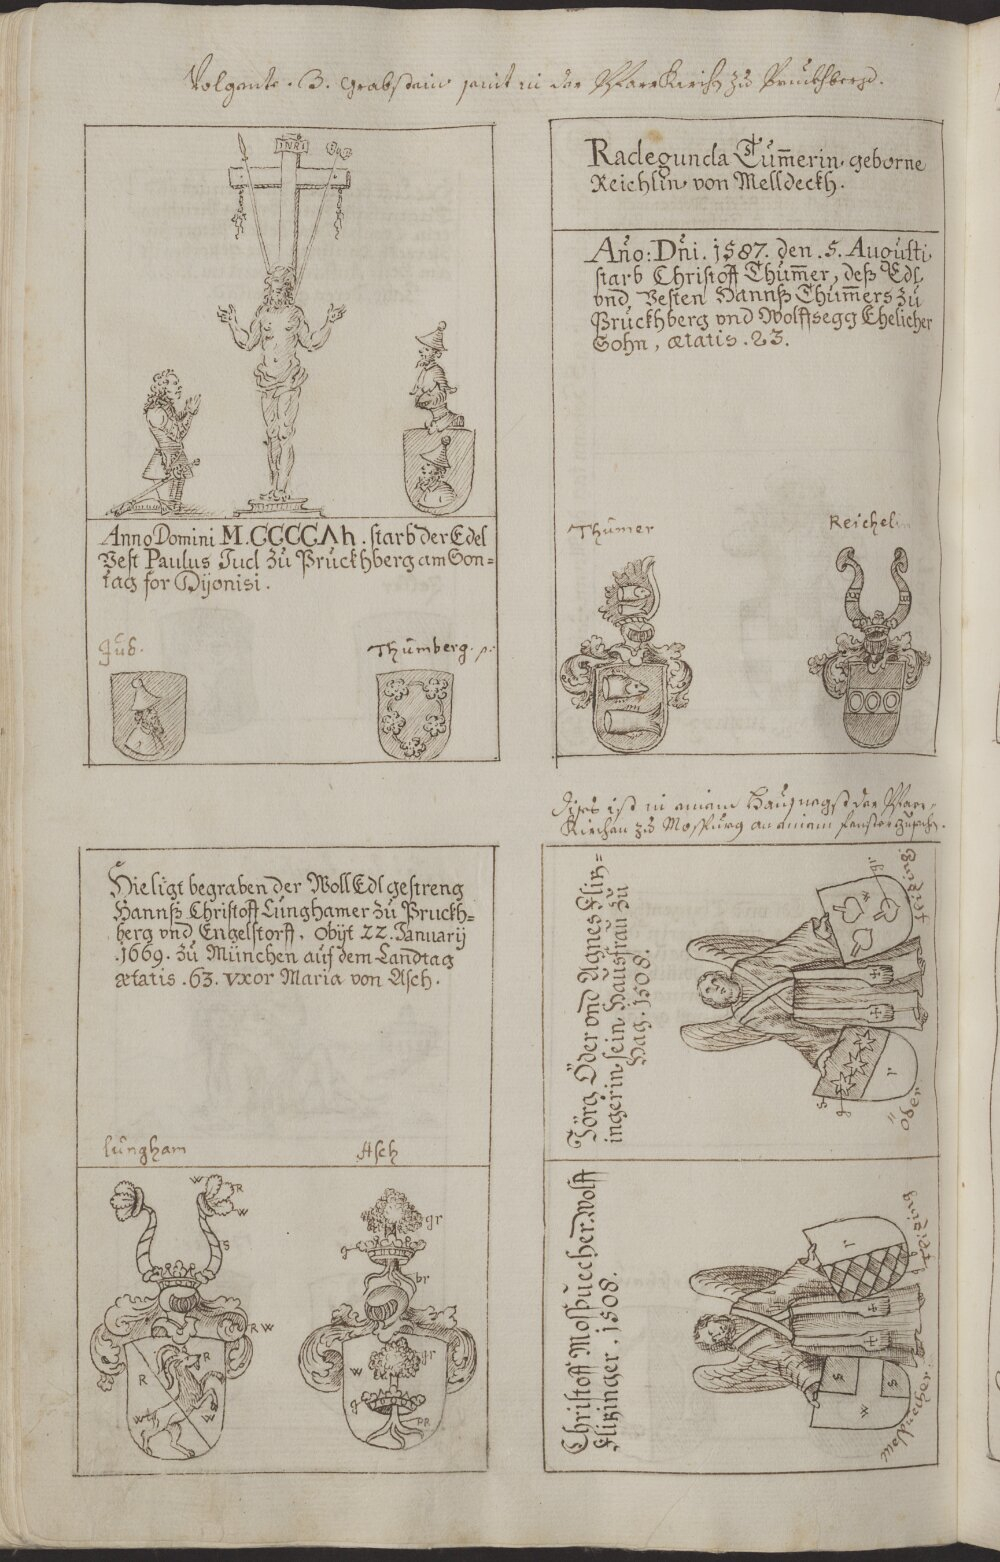 Volgente .3. Grabstain seint in der PfarrKirch zu Pruckhberg.
INRI
Anno Domini M.CCCCΛh. starb der Edel
Vest Paulus Jud zu Pruckhberg am Son=
tag for Dijonisi.
Jud.
Thumberg.
Radegunda Tum̄erin, geborne
Reichlin von Melldeckh.
An̄o: Dn̄i. 1587. den .5. Augusti
starb Christoff Thum̄er, deß Edl
vnd Vesten Hannß Thum̄ers zu
Pruckhberg vnd Wolffsegg Ehelicher
Sohn, ætatis .23.
Thumer
Reichel
Hie ligt begraben der WollEdl gestreng
Hannß Christoff Lunghamer zu Pruckh=
berg vnd Engelstorff. obijt 22. Januarij
.1669. zu München auf dem Landtag
ætatis .63. vxor Maria von Asch.
lungham
Asch
W
R
W
S
R W
R
R
W
W
gr
g
br
W
gr
g
Dises ist in ainem Hauß negst der Pfarr=
Kirchen zu Mosspurg an ainem fenster
Jörg Öder vnd Agnes Fliz=
ingerin sein Hausfrau zu
Hag. 1508.
gr
w
flizing
s
g
r
öder
Christoff Mospuecher. Wolff
Flizinger. 1508.
r
flizing
s
s
w
mospuecher